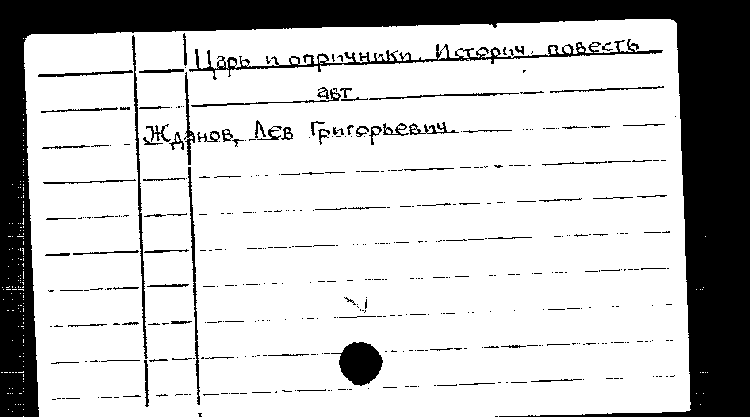 Царь и опричники. Историч. повесть
авт.
Жданов, Лев Григорьевич.